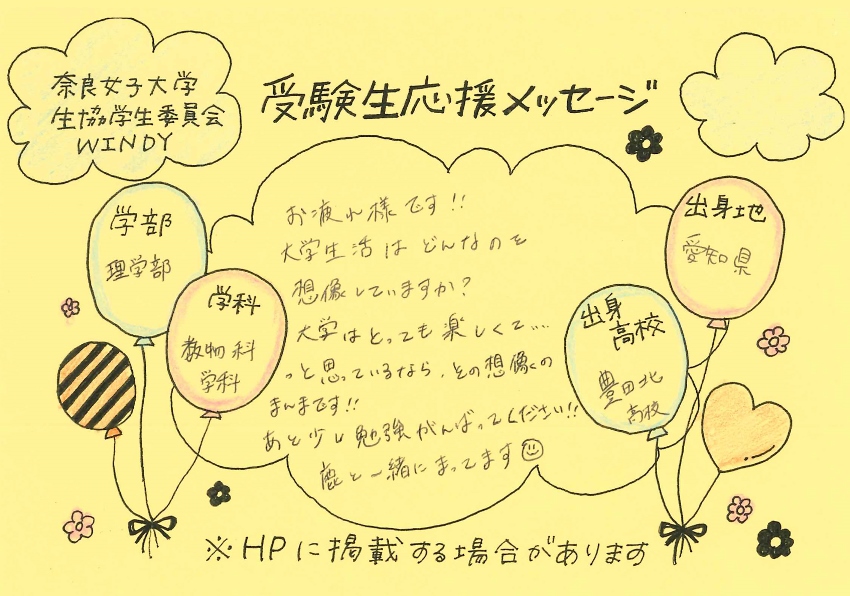 奈良女子大学
生協学生委員会
WINDY
受験生応援メッセージ
学部
理学部
学科
数物科
学科
お疲れ様です!!
大学生活はどんなのを
想像していますか?
大学はとっても楽しくて…
っと思っているなら、その想像の
まんまです!!
あと少し勉強がんばってください!!
鹿と一緒にまってます
出身地
愛知県
出身
高校
豊田北
高校
※HPに掲載する場合があります